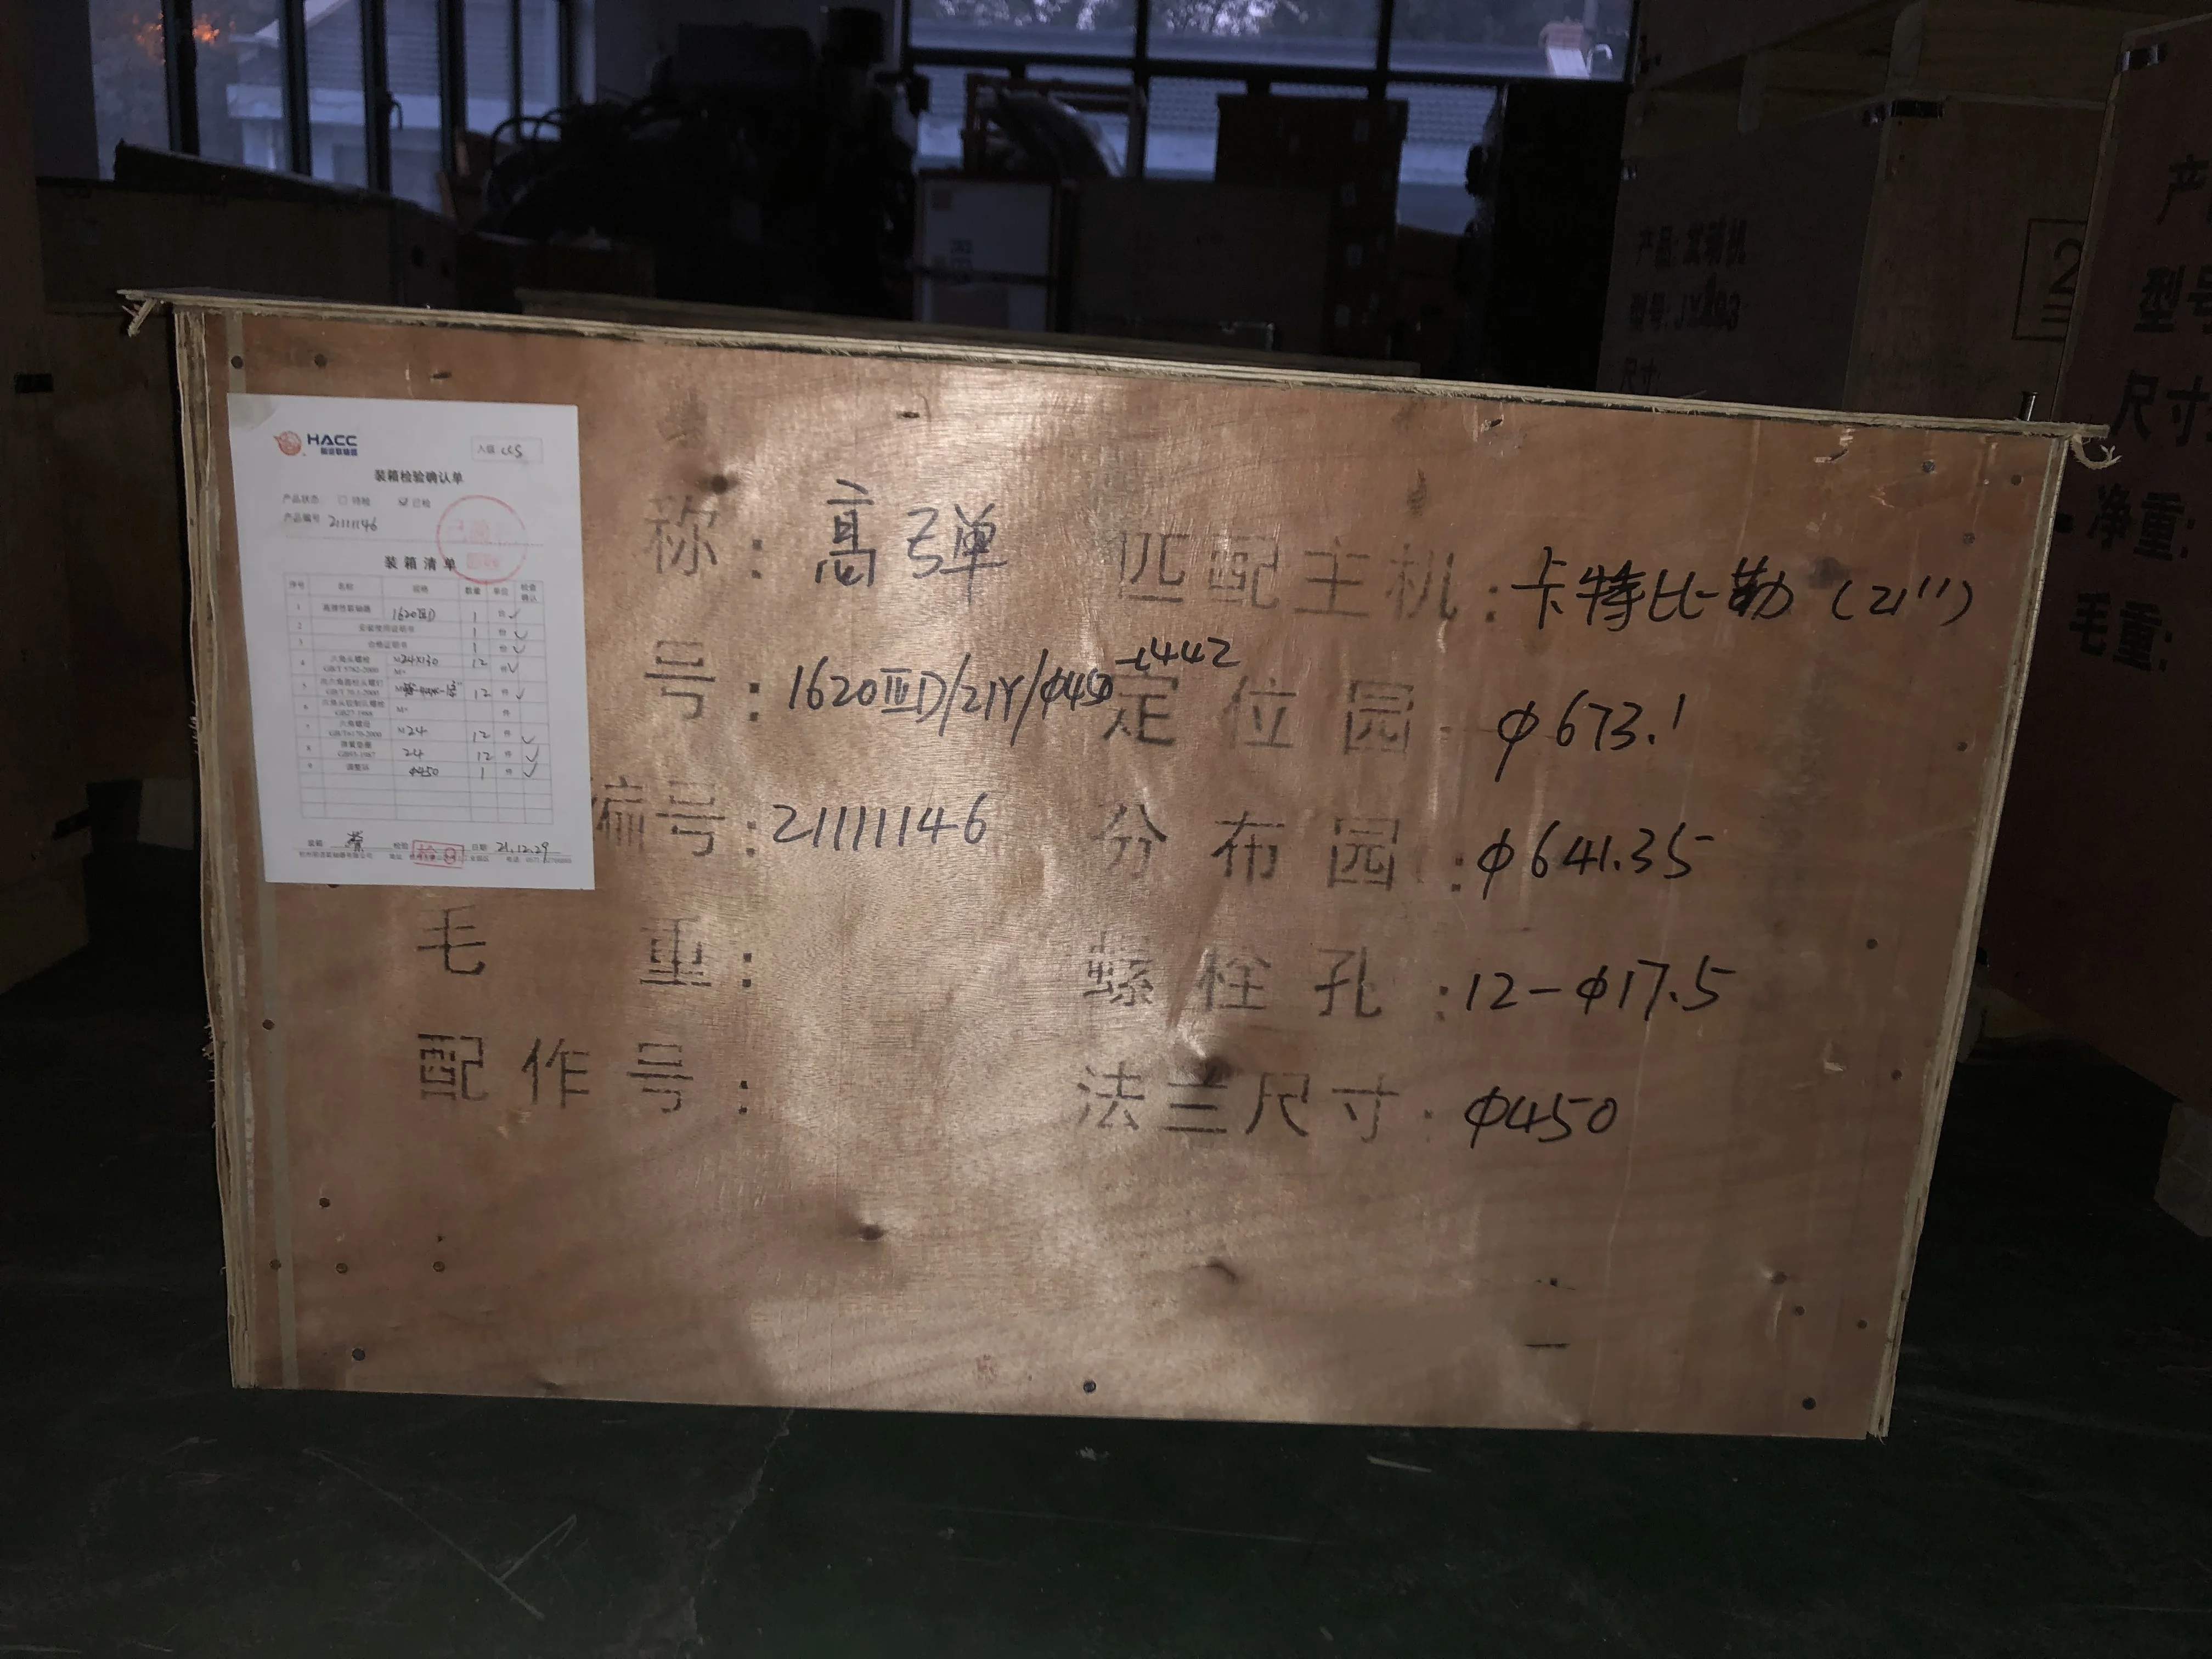 HACC
前进联轴器
入级 CCS
装箱检验确认单
产品状态 □ 待检 ☑ 已检
产品编号 21111146
装箱清单
序号 名称 规格 数量 单位 检查确认
1 高弹性联轴器 1620ⅢD 1 台 ✓
2 安装使用说明书 1 份 ✓
3 合格证明书 1 份 ✓
4 六角头螺栓 GB/T 5782-2000 M24×130 12 件 ✓
5 内六角圆柱头螺钉 GB/T 70.1-2000 12 件 ✓
6 六角头铰制孔螺栓 GB27-1988 M× 件
7 六角螺母 GB/T6170-2000 M24 12 件 ✓
8 弹簧垫圈 GB93-1987 24 12 件 ✓
9 调整环 φ450 1 件 ✓
装箱 检验 检 9 日期 21.12.29
称：高弹
号：1620ⅢD/21Y/φ450-t442
编号：21111146
毛重：
配作号：
匹配主机：卡特比勒（21"）
定位园：φ673.1
分布园：φ641.35
螺栓孔：12-φ17.5
法兰尺寸：φ450
产品:发动机
型号:
尺寸:
2
产
型号
尺寸
净重:
毛重: